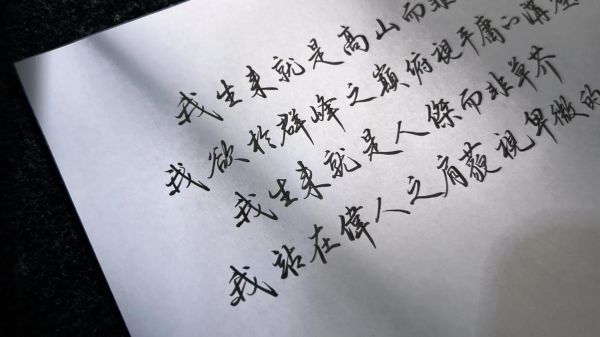 我生来就是高山而非
我欲於群峰之巔俯視平庸的溝壑
我生来就是人傑而非草芥
我站在偉人之肩藐視卑微的